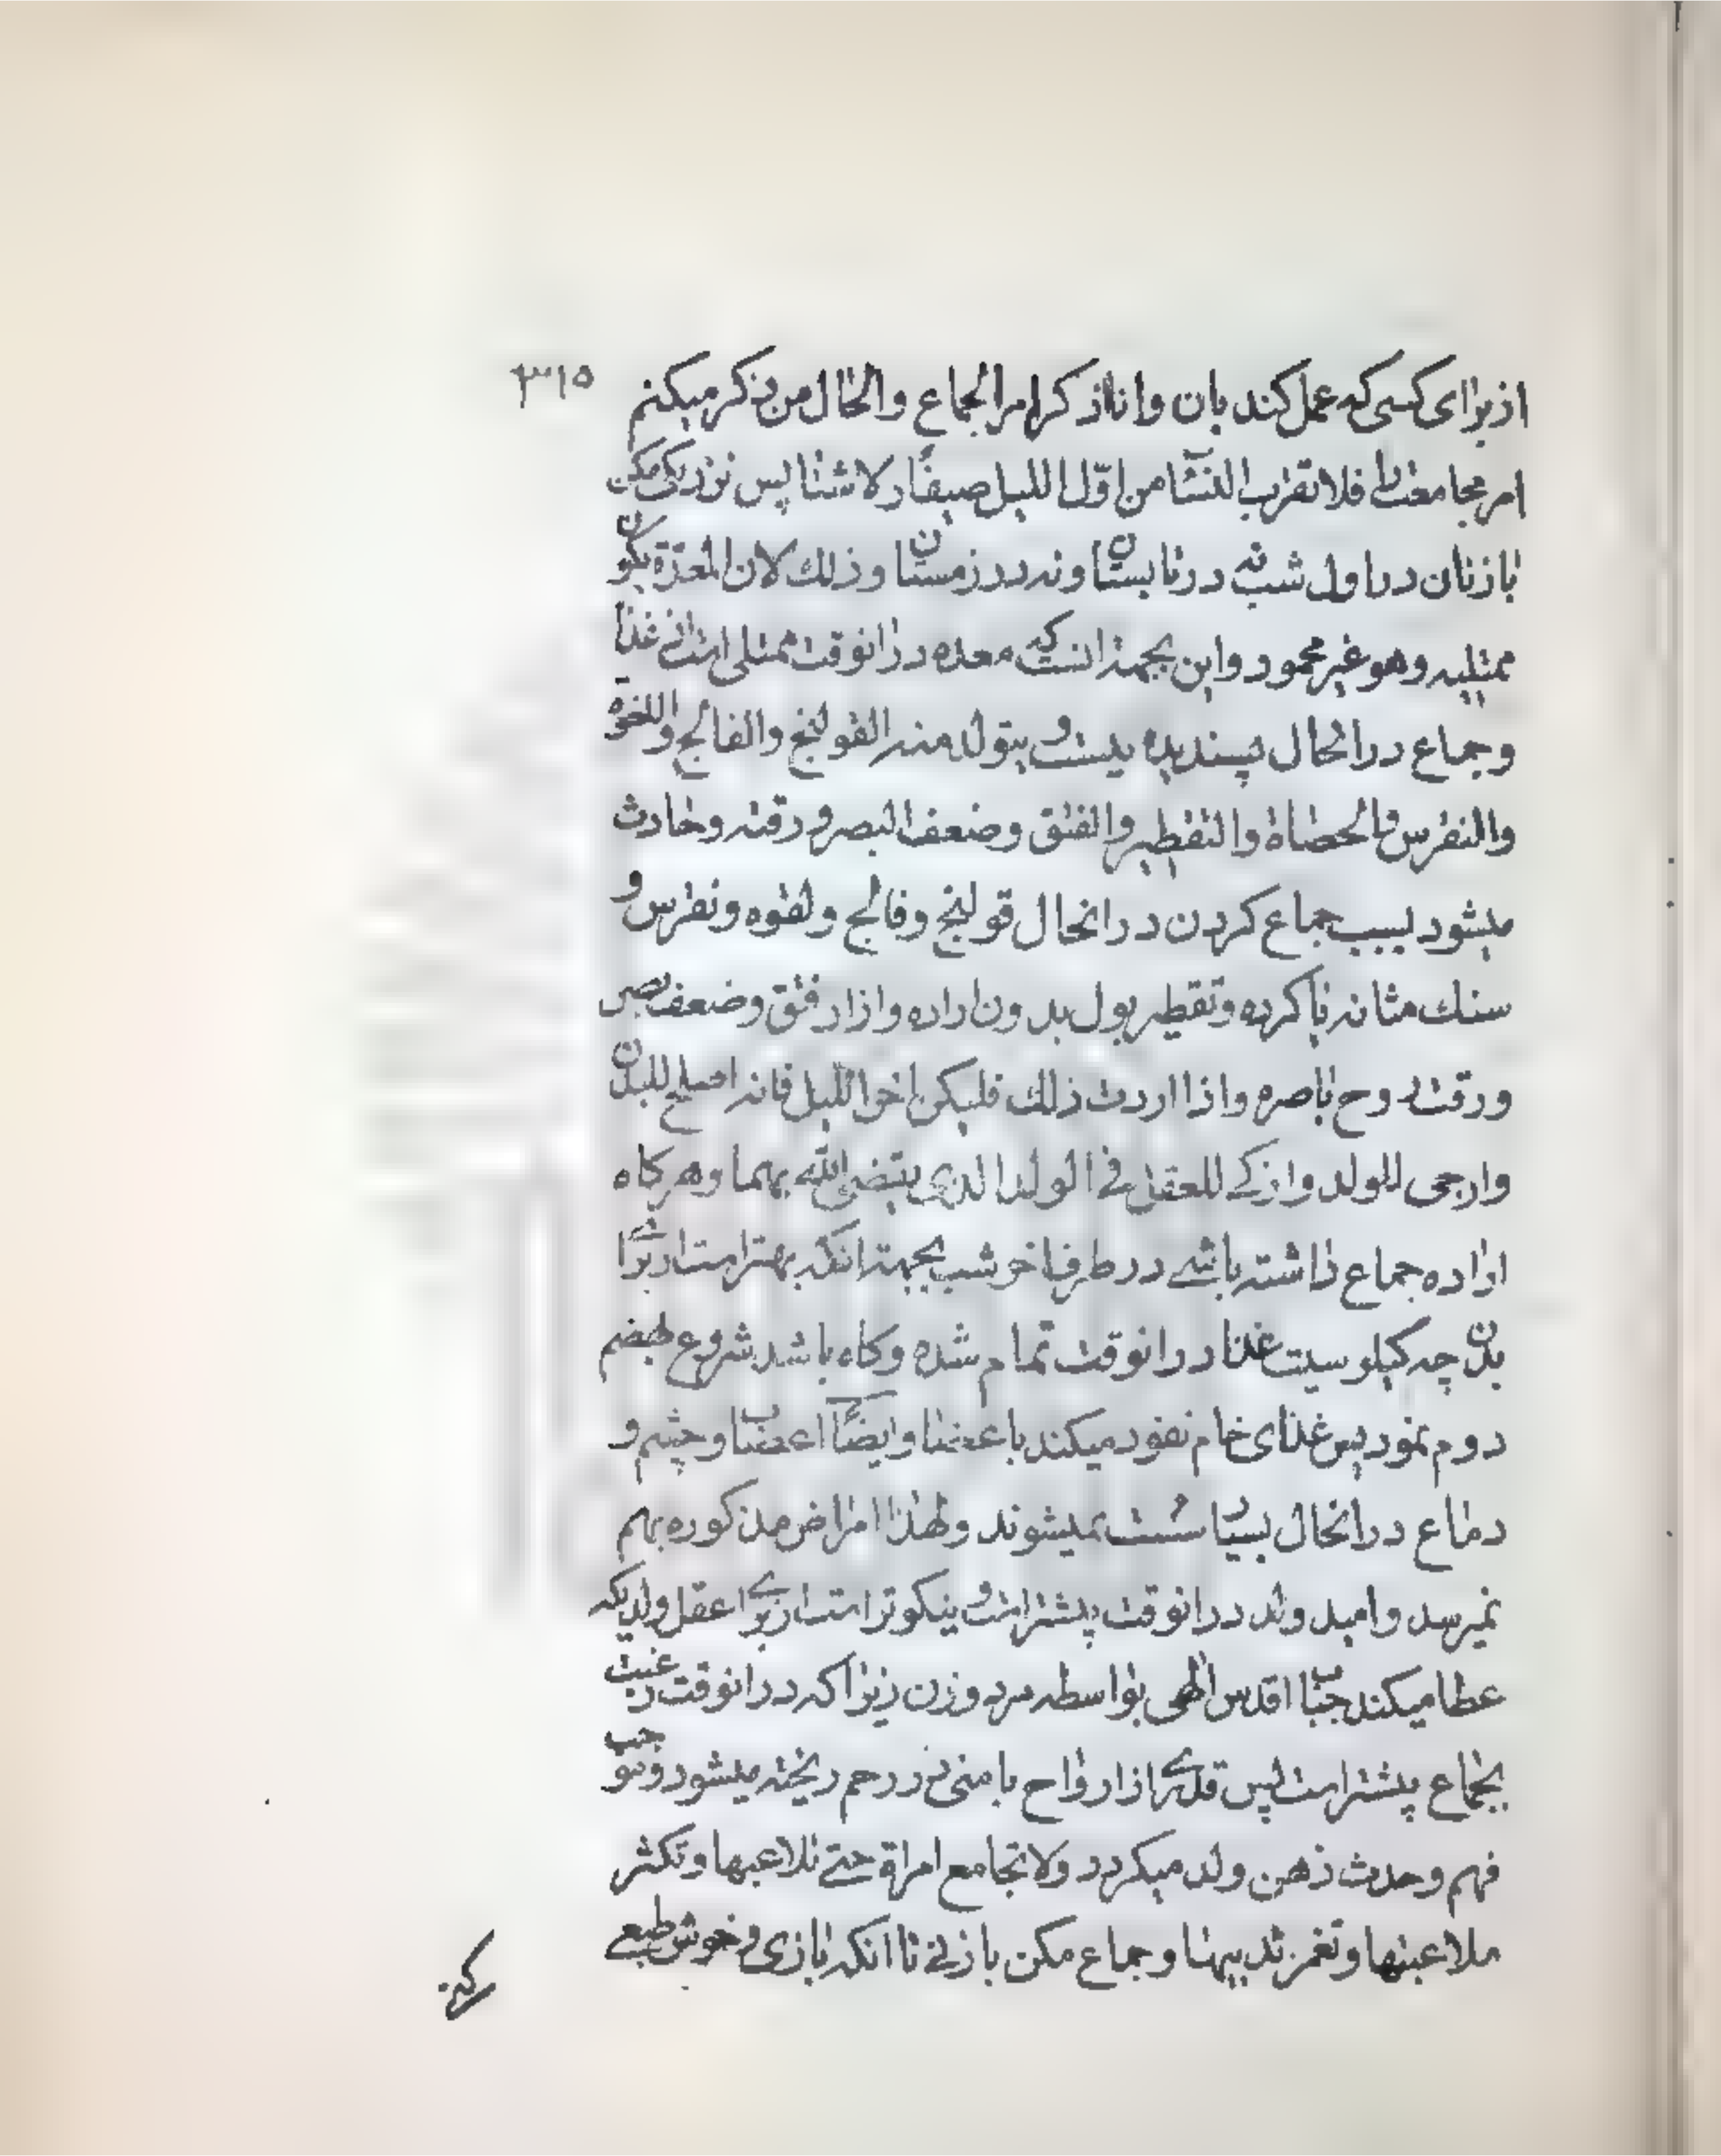 ٣١٥
از برای کسی که عمل کند بان وانا اذکر امر الجماع والحال من ذکر میکنم
امر مجامعت را فلا تقرب النسآ من اوّل اللیل صیفًا ولا شتا پس نزدیکی مکن
با زنان در اول شب نه در تابستان و نه در زمستان وذلك لان المعدة یکون
ممتلیه وهو غیر محمود واین بجهة انست که معده در انوقت ممتلی است از غذا
وجماع در انحال پسندیده نیست و یتولد منه القولنج والفالج واللقوة
والنقرس والحصاة والتقطیر والفتق وضعف البصر و رقته وحادث
میشود بسبب جماع کردن در انحال قولنج وفالج ولقوه ونقرس و
سنك مثانه یا کرده وتقطیر بول بدون اراده وازار فتق وضعف بصر
ورقت روح باصره واذا اردت ذلك فلیکن اخر اللیل فانه اصلح للبدن
وارجی للولد وازکی للعقل فی الولد الذی یقضی الله بهما وهرکاه
اراده جماع داشته باشی در طرف اخر شب بجهة انکه بهتر است از برای
بدن چه کیلوسیت غذا در انوقت تمام شده وکاه باشد شروع بهضم
دوم نمود پس غذای خام نفود میکند باعضا وایضًا اعصاب وچشم و
دماع در انحال بسیار سست نمیشوند ولهذا امراض مذکوره بهم
نمیرسد وامید ولد در انوقت پیشتر است و نیکوتر است از برای عقل ولدیکه
عطا میکند جناب اقدس الهی بواسطه مرد وزن زیرا که در انوقت رغبت
بجماع پیشتر است پس قدری از ارواح با منی در رحم ریخته میشود و موجب
فهم وحدث ذهن ولد میکردد ولا تجامع امراة حتی تلاعبها وتکثر
ملاعبتها وتغمز ثدییها وجماع مکن با زنی تا انکه بازی و خوش طبعی
کنی